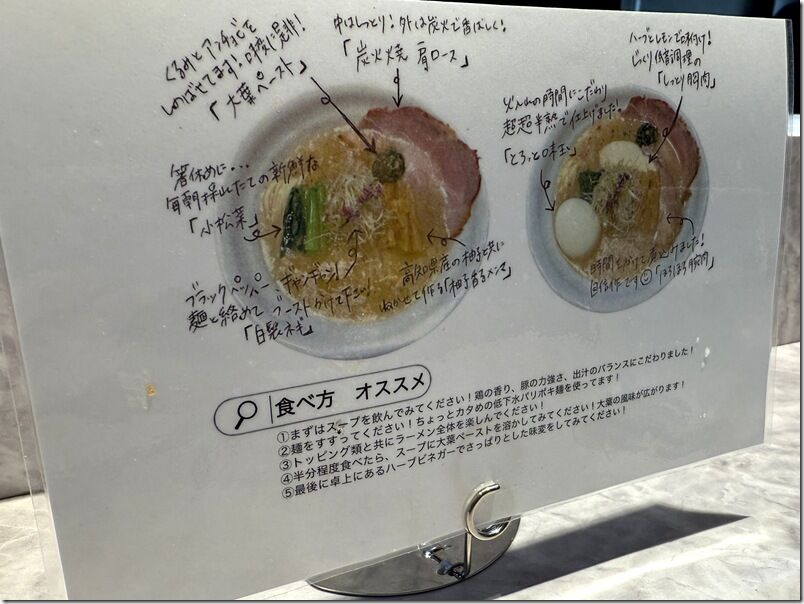 くるみとアンチョビを
しのばせてます！味変に是非！
「大葉ペースト」
中はしっとり！外は炭火で香ばしく！
「炭火焼 肩ロース」
箸休めに・・・
毎朝搾したての新鮮な
「小松菜」
ブラックペッパー、ギャンギャン！
麺と絡めてブーストかけて下さい！
「白髪ネギ」
高知県産の柚子と共に
ねかせて作る「柚子香るメンマ」
ハーブとレモンで味付け！
じっくり低音調理の
「しっとり胸肉」
の時間にこだわり
超超半熟で仕上げました！
「とろっと味玉」
時間をかけて煮込みました！
自信作です「ほろほろ豚肉」
食べ方 オススメ
①まずはスープを飲んでみてください！鶏の香り、豚の力強さ、出汁のバランスにこだわりました！
②麺をすすってください！ちょっとカタめの低下水パリポキ麺を使ってます！
③トッピング類と共にラーメン全体を楽しんでください！
④半分程度食べたら、スープに大葉ペーストを溶かしてみてください！大葉の風味が広がります！
⑤最後に卓上にあるハーブビネガーでさっぱりとした味変をしてみてください！